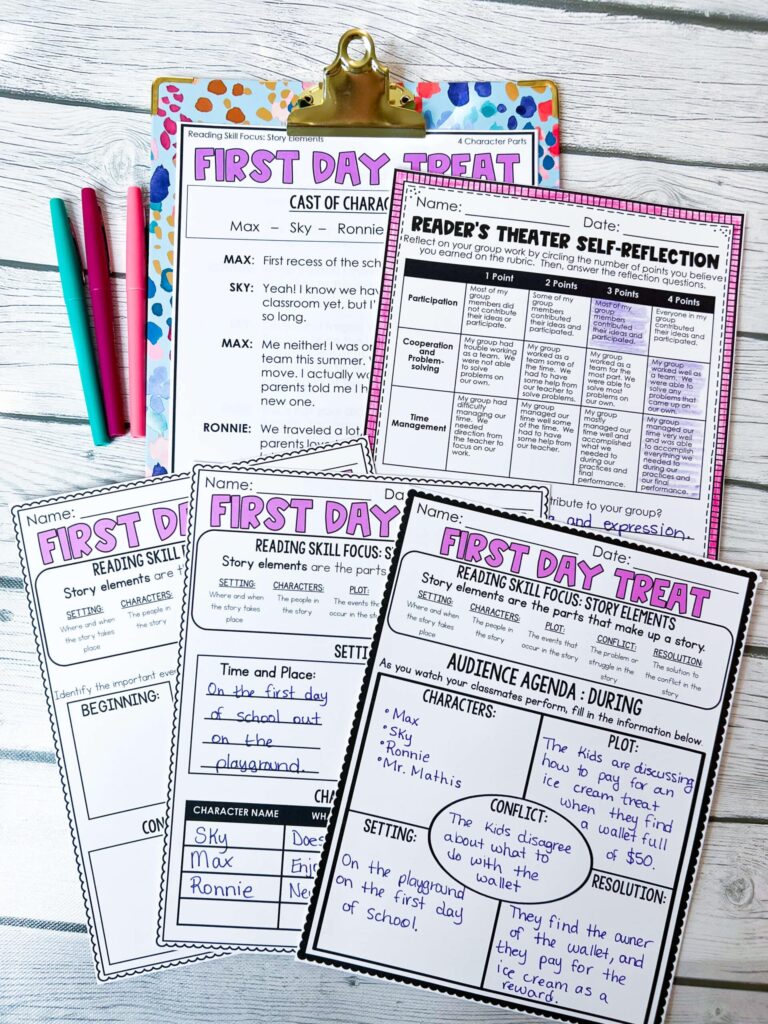 Reading Skill Focus: Story Elements
4 Character Parts
FIRST DAY TREAT
CAST OF CHARAC
Max – Sky – Ronnie
MAX: First recess of the sch
SKY: Yeah! I know we hav
classroom yet, but I'
so long.
MAX: Me neither! I was on
team this summer. W
move. I actually wo
parents told me I h
new one.
RONNIE: We traveled a lot,
parents love
Name:
Date:
READER'S THEATER SELF-REFLECTION
Reflect on your group work by circling the number of points you believe
you earned on the rubric. Then, answer the reflection questions.
1 Point
2 Points
3 Points
4 Points
Participation
Most of my
group
members did
not contribute
their ideas or
participate.
Some of my
group
members
contributed their
ideas and
participated.
Most of my
group
members
contributed their
ideas and
participated.
Everyone in my
group
contributed their
ideas and
participated.
Cooperation
and
Problem-
solving
My group had
trouble working
as a team. We
were not able
to solve
problems on
our own.
My group
worked as a
team some of
the time. We
had to have
some help from
our teacher to
solve problems.
My group
worked as a
team for the
most part. We
were able to
solve most
problems on
our own.
My group
worked well as
a team. We
were able to
solve any
problems that
came up on
our own.
Time
Management
My group had
difficulty
managing our
time. We
needed
direction from
the teacher to
focus on our
work.
My group
managed our
time well some
of the time. We
had to have
some help from
our teacher.
My group
mostly
managed our
time well and
accomplished
what we
needed to
during our
practices and
final
performance.
My group
managed our
time very well
and was able
to accomplish
everything we
needed to
during our
practices and
our final
performance.
tribute to your group?
and expression.
Name:
FIRST DAY
READING SKILL FOCUS
Story elements are the
SETTING:
Where and when
the story takes
place
CHARACTERS:
The people in
the story
Identify the important eve
BEGINNING:
CON
Name:
Da
FIRST DAY
READING SKILL FOCUS: S
Story elements are the parts
SETTING:
Where and when
the story takes
place
CHARACTERS:
The people in
the story
PLOT:
The events th
occur in the
story
SETTI
Time and Place:
On the first day
of school out
on the
playground.
CHA
CHARACTER NAME
WHA
Sky
Does
Max
Enj
Ronnie
Ne
Name:
Date:
FIRST DAY TREAT
READING SKILL FOCUS: STORY ELEMENTS
Story elements are the parts that make up a story.
SETTING:
Where and when
the story takes
place
CHARACTERS:
The people in
the story
PLOT:
The events that
occur in the story
CONFLICT:
The problem or
struggle in the
story
RESOLUTION:
The solution to
the conflict in
the story
AUDIENCE AGENDA : DURING
As you watch your classmates perform, fill in the information below.
CHARACTERS:
• Max
• Sky
• Ronnie
• Mr. Mathis
PLOT:
The kids are discussing
how to pay for an
ice cream treat
when they find
a wallet full
of $50.
CONFLICT:
The kids disagree
about what to
do with the
wallet
SETTING:
On the playground
on the first day
of school.
RESOLUTION:
They find the owner
of the wallet, and
they pay for the
ice cream as a
reward.